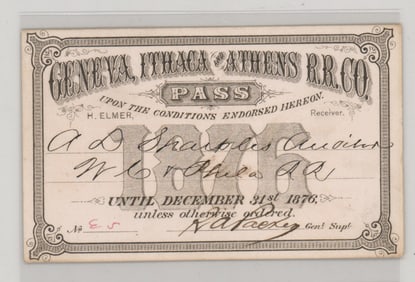 GENEVA, ITHACA AND ATHENS R.R. CO.
PASS
UPON THE CONDITIONS ENDORSED HEREON.
H. ELMER, Receiver.
1876
A D Sharples Auditor
W C & Phila RR
UNTIL DECEMBER 31st 1876,
unless otherwise ordered.
No E 5 R A Packer Genl Supt